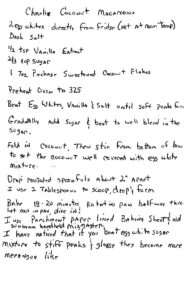 Charlie Coconut Macaroons
2 egg whites directly from Fridge (not at room temp)
Dash Salt
1/2 tsp Vanilla Extract
2/3 cup Sugar
1 7oz Package Sweetened Coconut Flakes
Preheat Oven to 325
Beat Egg Whites, Vanilla & Salt until soft peaks form
Gradually add Sugar & beat to well blend in the
sugar.
Fold in Coconut, Then stir from bottom of bowl
to get the coconut well covered with egg white
mixture.
Drop rounded spoonfuls about 2" apart
I use 2 Tablespoons to scoop, drop & form
Bake 18-20 minutes Rotating pan halfway thru
Let cool in pan, dive in!
I use Parchment paper lined Baking Sheet & old
sunbeam handheld mixmaster
I have noticed that if you beat egg white sugar
mixture to stiff peaks & glossy they become more
merangue like